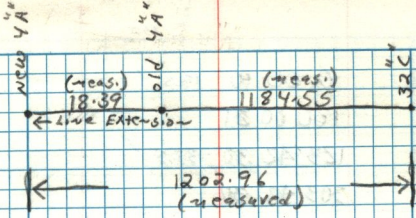 New "4A"
old "4A"
"32C"
(meas.)
18.39
(meas.)
1184.55
← Line Extension
1202.96
(measured)